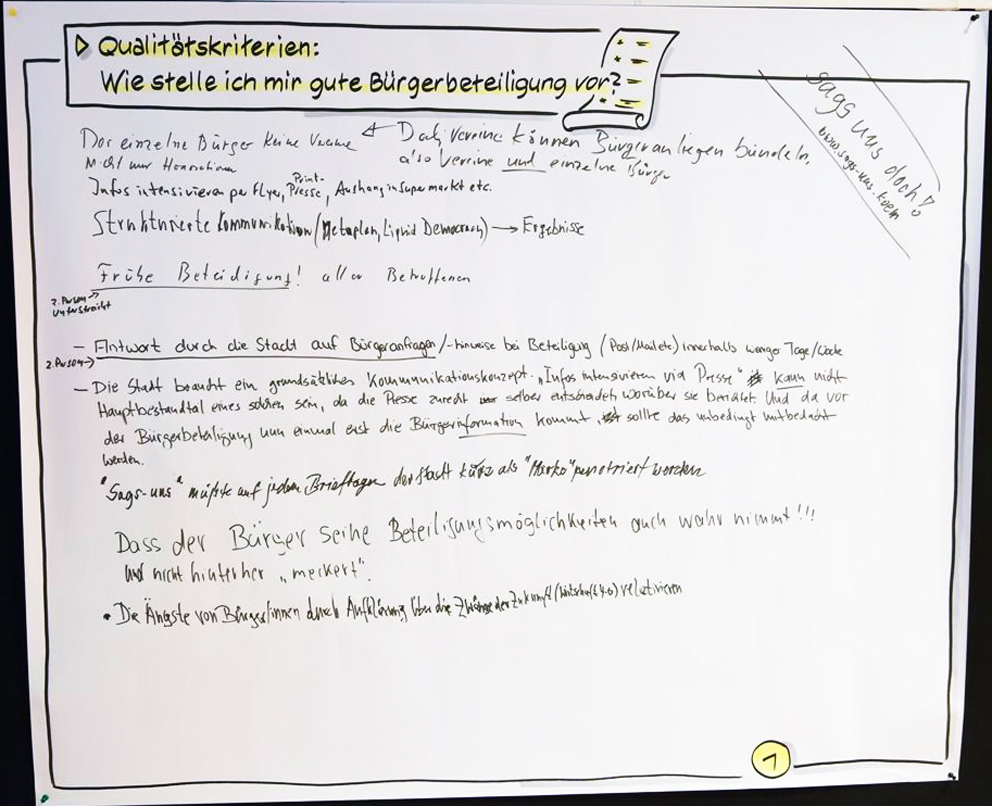 Qualitätskriterien:
Wie stelle ich mir gute Bürgerbeteiligung vor?
sags uns doch!
www.sags-uns.koeln
Der einzelne Bürger keine Vereine
Nicht nur Honoratioren
Doch, Vereine können Bürgeranliegen bündeln,
also Vereine und einzelne Bürger
Infos intensivieren per Flyer, Print-Presse, Aushang in Supermarkt etc.
Strukturierte Kommunikation (Metaplan, Liquid Democracy) → Ergebnisse
Frühe Beteiligung! aller Betroffenen
2. Person →
unterstreicht
– Antwort durch die Stadt auf Bürgeranfragen/-hinweise bei Beteiligung (Post/Mail etc) innerhalb weniger Tage/Woche
2. Person →
– Die Stadt braucht ein grundsätzliches Kommunikationskonzept. „Infos intensivieren via Presse" kann nicht
Hauptbestandteil eines solchen sein, da die Presse zurecht selber entscheidet, worüber sie berichtet. Und da vor
der Bürgerbeteiligung nun einmal erst die Bürgerinformation kommt, sollte das unbedingt mitbedacht
werden.
"Sags-uns" müßte auf jeden der Stadt Köln als "Marke" penetriert werden
Dass der Bürger seine Beteiligungsmöglichkeiten auch wahr nimmt!!!
und nicht hinterher „meckert".
• Die Ängste von Bürger/innen durch Aufklärung über die Zwänge der Zukunft (Wirtschaft 4.0) relativieren
1